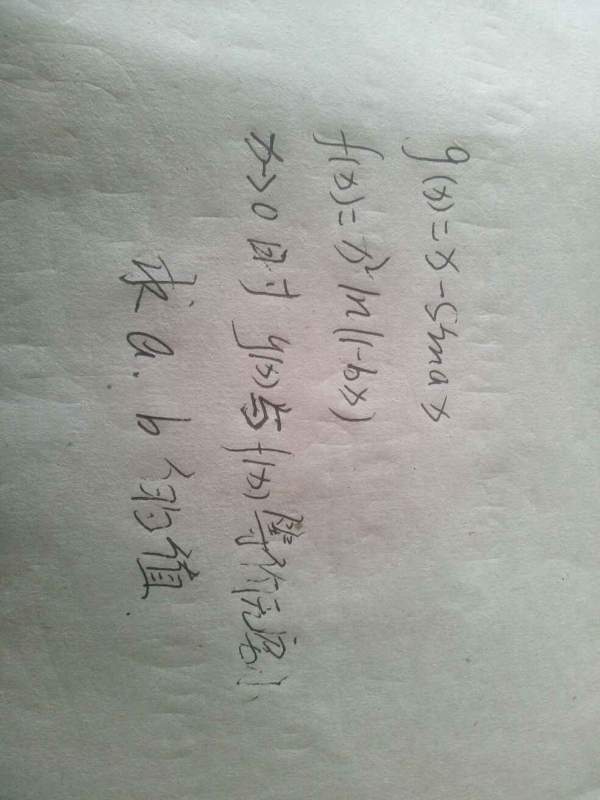 g(x)=x-sinax
f(x)=x²ln(1-bx)
x→0时 g(x)与f(x)等价无穷小
求a.b的值.